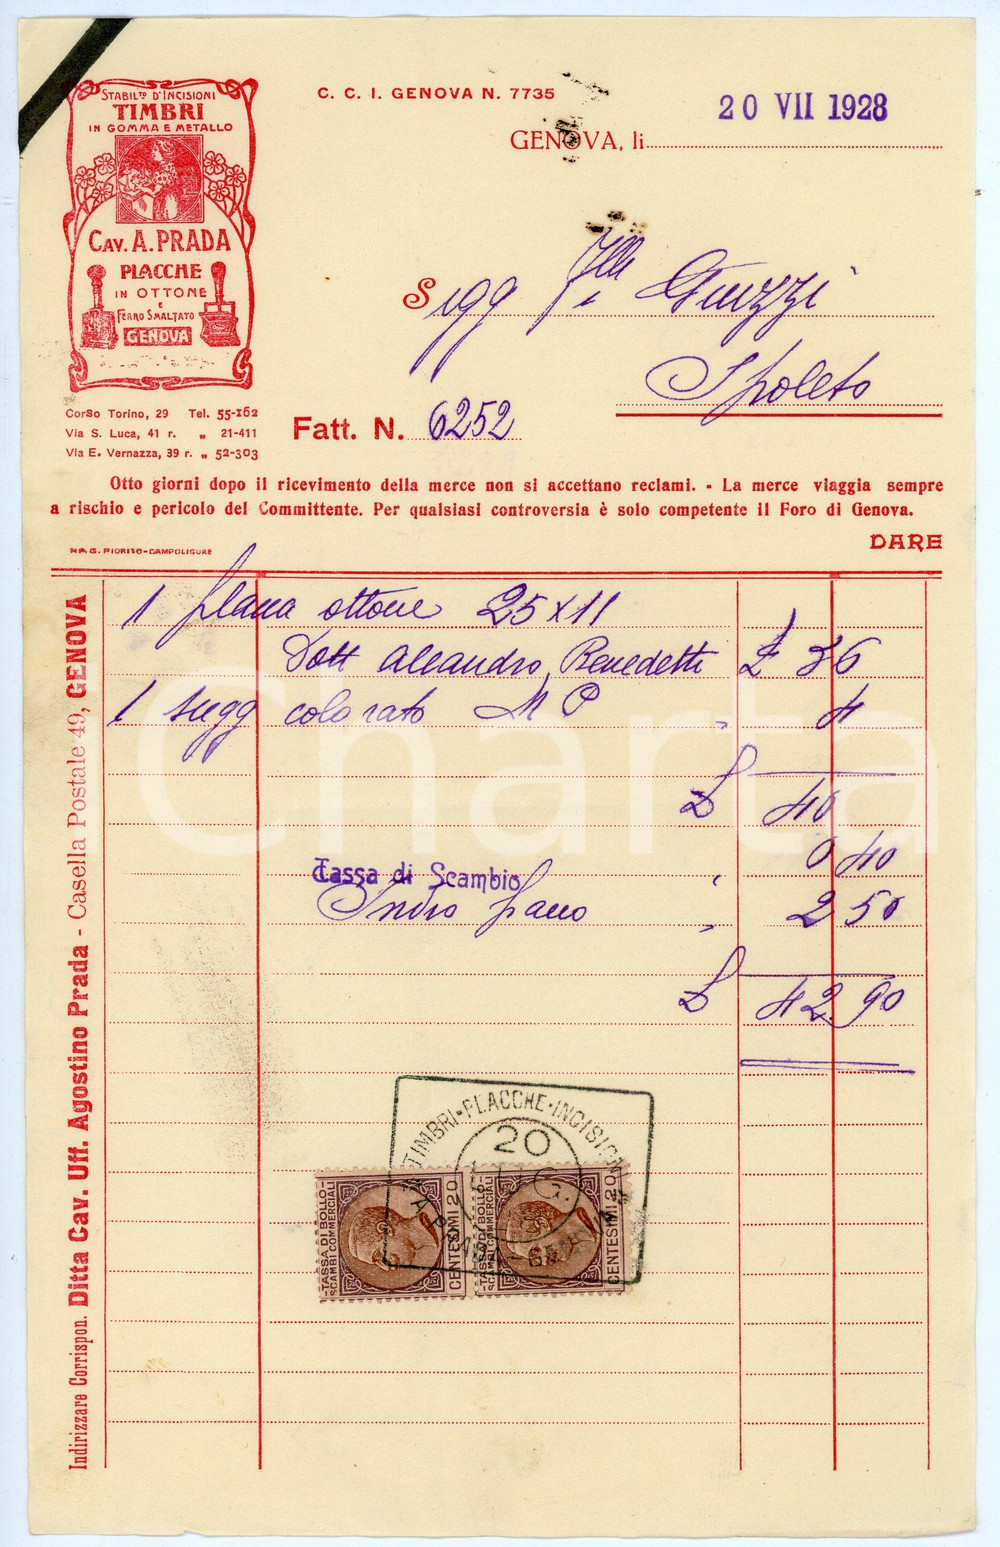 STABIL.TO D'INCISIONI
TIMBRI
IN GOMMA E METALLO
CAV. A. PRADA
PLACCHE
IN OTTONE
E
FERRO SMALTATO
GENOVA
Corso Torino, 29 Tel. 55-162
Via S. Luca, 41 r. „ 21-411
Via E. Vernazza, 39 r. „ 52-303
C. C. I. GENOVA N. 7735
GENOVA, li 20 VII 1928
Sigg Flli Guzzi
Spoleto
Fatt. N. 6252
Otto giorni dopo il ricevimento della merce non si accettano reclami. - La merce viaggia sempre
a rischio e pericolo del Committente. Per qualsiasi controversia è solo competente il Foro di Genova.
DARE
G. FIORITO-CAMPOLIGURE
1 placca ottone 25 x 11
Dott Aleandro Benedetti £ 36
1 sugg colorato M P „ 4
£ 40
Tassa di Scambio „ 0 40
„ 2 50
£ 42.90
Indirizzare Corrispon. Ditta Cav. Uff. Agostino Prada - Casella Postale 49, GENOVA
TIMBRI-PLACCHE-INCISIONI
20
TASSA DI BOLLO
SCAMBI COMMERCIALI
CENTESIMI 20
TASSA DI BOLLO
SCAMBI COMMERCIALI
CENTESIMI 20
Charta